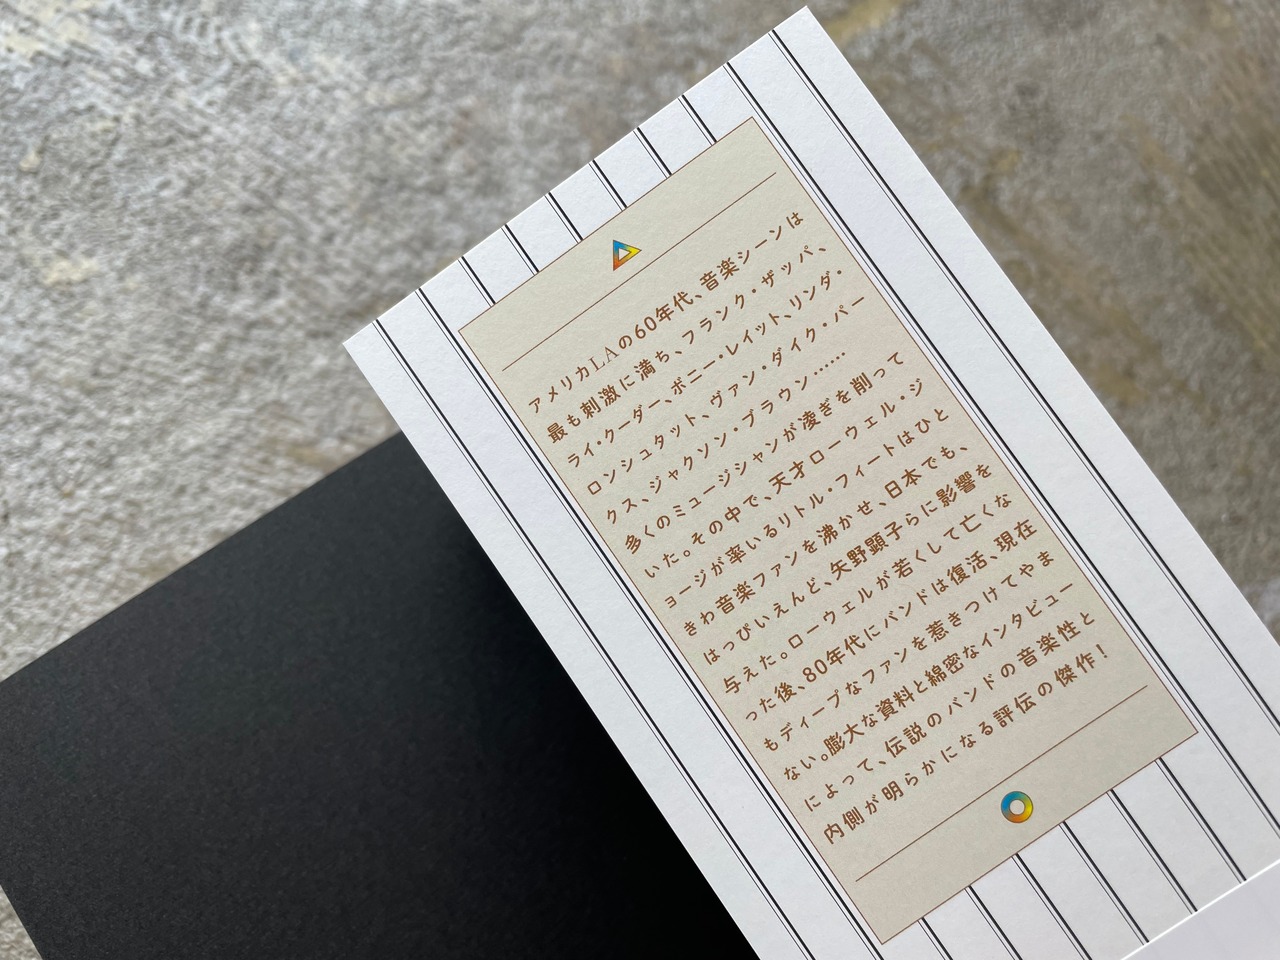 アメリカLAの60年代、音楽シーンは
最も刺激に満ち、フランク・ザッパ、
ライ・クーダー、ボニー・レイット、リンダ・
ロンシュタット、ヴァン・ダイク・パー
クス、ジャクソン・ブラウン……
多くのミュージシャンが凌ぎを削って
いた。その中で、天才ローウェル・ジ
ョージが率いるリトル・フィートはひと
きわ音楽ファンを沸かせ、日本でも、
はっぴいえんど、矢野顕子らに影響を
与えた。ローウェルが若くして亡くな
った後、80年代にバンドは復活、現在
もディープなファンを惹きつけてやま
ない。膨大な資料と綿密なインタビュー
によって、伝説のバンドの音楽性と
内側が明らかになる評伝の傑作！